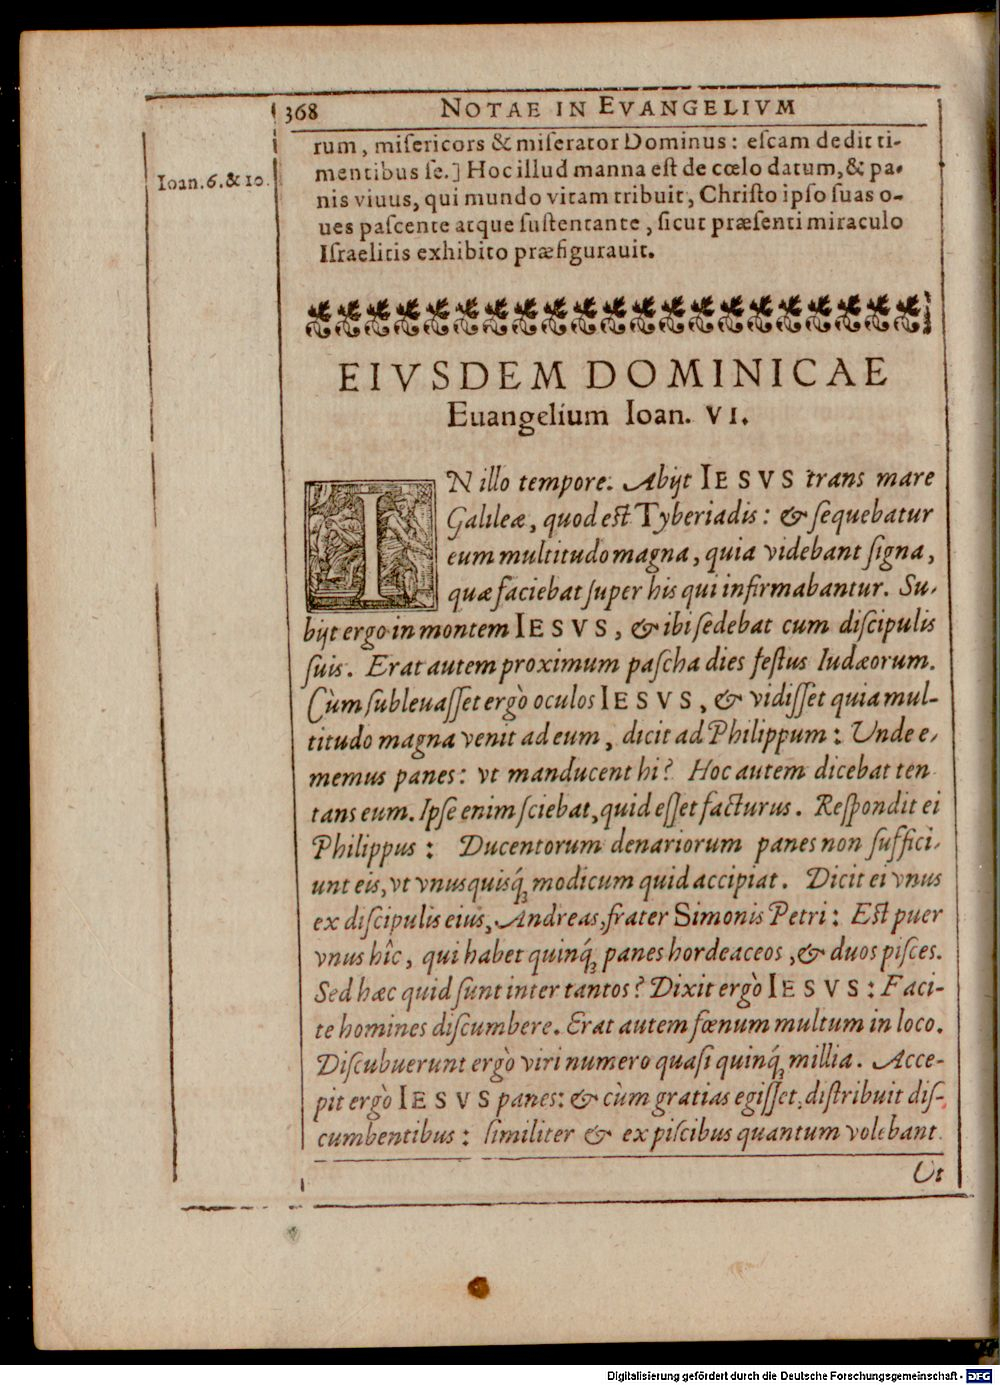 368 NOTAE IN EVANGELIVM
rum, miſericors & miſerator Dominus: eſcam dedit ti-
mentibus ſe.] Hoc illud manna eſt de cœlo datum, & pa-
Ioan. 6. & 10.
nis viuus, qui mundo vitam tribuit, Chriſto ipſo ſuas o-
ues paſcente atque ſuſtentante, ſicut præſenti miraculo
Iſraelitis exhibito præfigurauit.
EIVSDEM DOMINICAE
Euangelium Ioan. VI.
IN illo tempore. Abijt IESVS trans mare
Galileæ, quod eſt Tyberiadis: & ſequebatur
eum multitudo magna, quia videbant ſigna,
quæ faciebat ſuper his qui infirmabantur. Su-
bijt ergo in montem IESVS, & ibi ſedebat cum diſcipulis
ſuis. Erat autem proximum paſcha dies feſtus Iudæorum.
Cùm ſubleuaſſet ergò oculos IESVS, & vidiſſet quia mul-
titudo magna venit ad eum, dicit ad Philippum: Unde e-
memus panes: vt manducent hi? Hoc autem dicebat ten
tans eum. Ipſe enim ſciebat, quid eſſet facturus. Reſpondit ei
Philippus: Ducentorum denariorum panes non ſuffici-
unt eis, vt vnusquisq́ꝫ modicum quid accipiat. Dicit ei vnus
ex diſcipulis eius, Andreas, frater Simonis Petri: Eſt puer
vnus hîc, qui habet quinq́ꝫ panes hordeaceos, & duos piſces.
Sed hæc quid ſunt inter tantos? Dixit ergò IESVS: Faci-
te homines diſcumbere. Erat autem fœnum multum in loco.
Diſcubuerunt ergò viri numero quaſi quinq́ꝫ millia. Acce-
pit ergò IESVS panes: & cùm gratias egiſſet, diſtribuit diſ-
cumbentibus: ſimiliter & ex piſcibus quantum volebant.
Ut
Digitalisierung gefördert durch die Deutsche Forschungsgemeinschaft - DFG